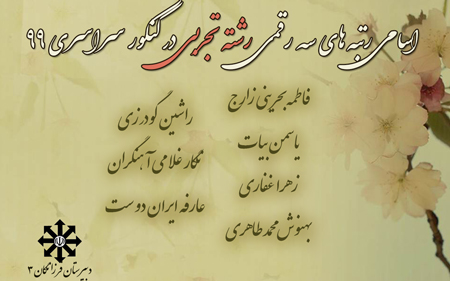 اسامی رتبه های سه رقمی رشته تجربی در کنکور سراسری ۹۹
فاطمه بحرینی زارج
یاسمن بیات
زهرا غفاری
بهنوش محمدطاهری
راشین گودرزی
نگار غلامی آهنگران
عارفه ایران دوست
دبیرستان فرزانگان ۳